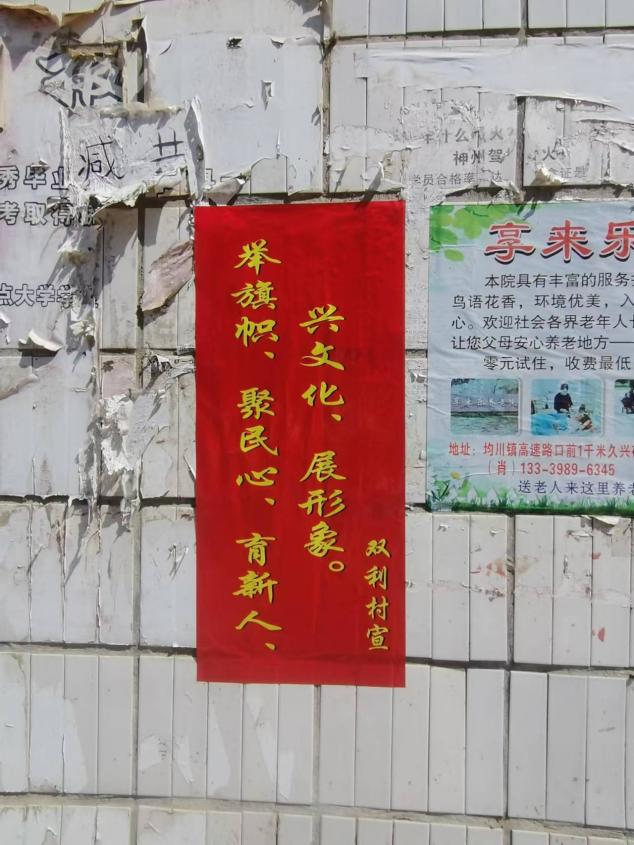 减
秀毕业
考取得
点大学学
什么
火?
神州驾
火?
学员合格率
达
证是
举旗帜、聚民心、育新人、
兴文化、展形象。
双利村宣
享来乐
本院具有丰富的服务
鸟语花香，环境优美，入
心。欢迎社会各界老年人
让您父母安心养老地方——
零元试住，收费最低
地址：均川镇高速路口前1千米久兴
（肖）133-3989-6345
送老人来这里养老